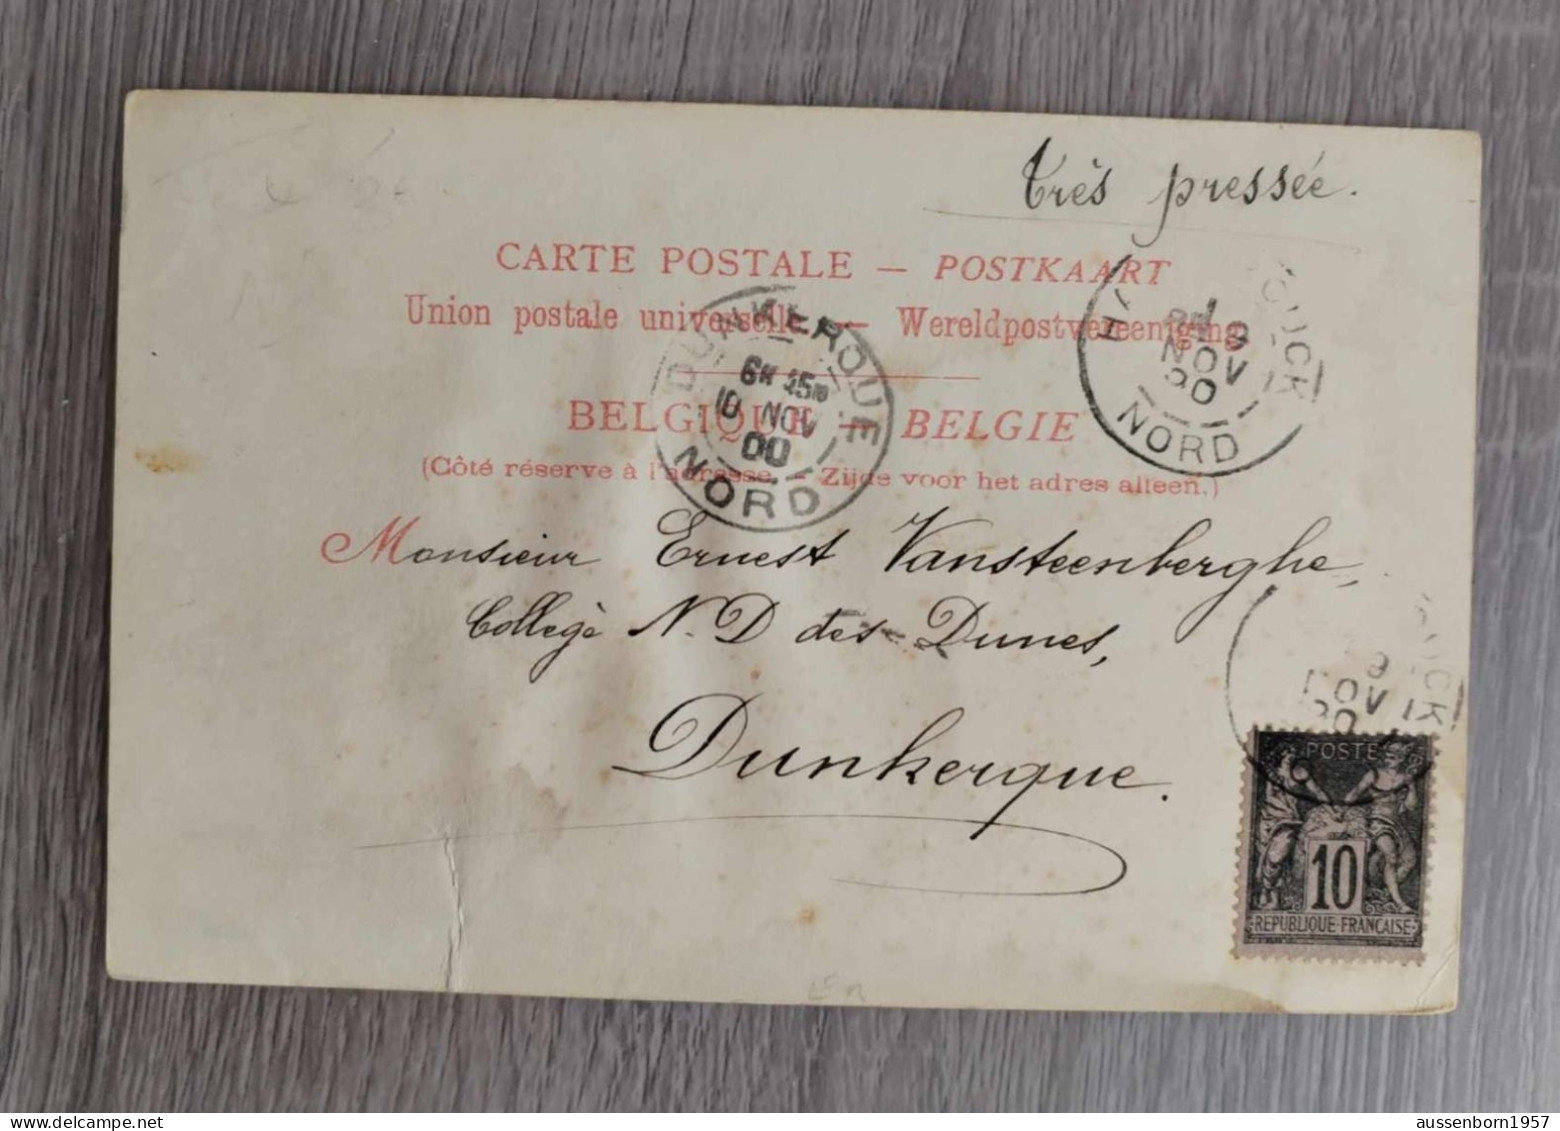 Très pressée.
CARTE POSTALE — POSTKAART
Union postale universelle — Wereldpostvereeniging
BELGIQUE — BELGIE
(Côté réservé à l'adresse. – Zijde voor het adres alleen.)
DUNKERQUE
6H 45
10 NOV
00
NORD
9
NOV
00
NORD
Monsieur Ernest Vansteenberghe,
Collège N. D des Dunes,
Dunkerque.
NOV
POSTE
10
REPUBLIQUE FRANCAISE
aussenborn1957